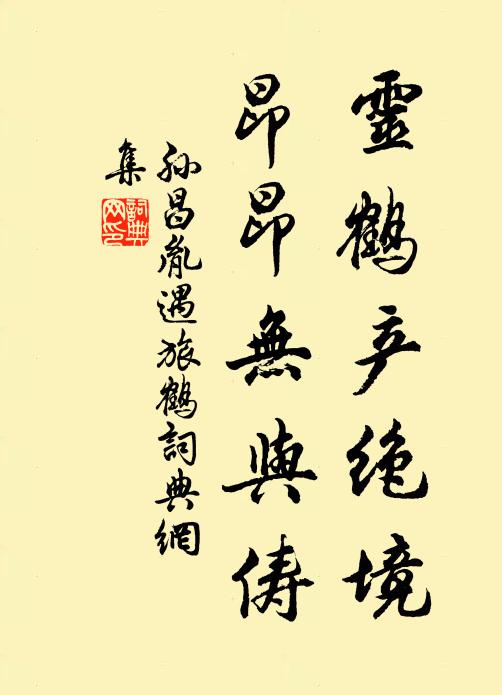 靈鶴产絶境
昂昂無與儔
孙昌胤遇旅鶴詞典網
集
詞典
网印